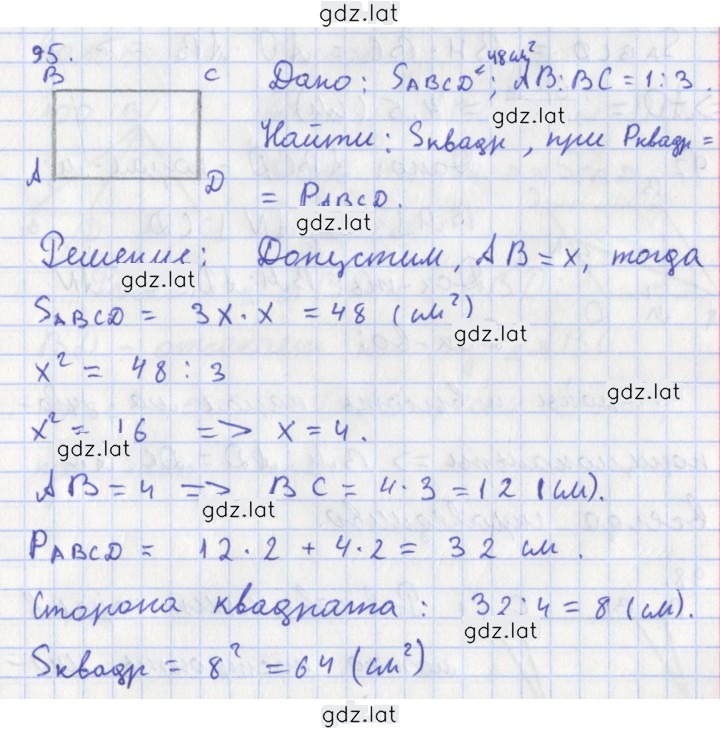 gdz.lat
95.
B C
A D
Дано: SABCD = 48 см²; AB:BC = 1:3.
gdz.lat
Найти: Sквадр, при Pквадр =
= PABCD.
gdz.lat
Решение: Допустим, AB = x, тогда
gdz.lat
SABCD = 3x·x = 48 (см²)
gdz.lat
x² = 48 : 3
gdz.lat
x² = 16 => x = 4.
gdz.lat
AB = 4 => BC = 4·3 = 12 (см).
gdz.lat
PABCD = 12·2 + 4·2 = 32 см.
Сторона квадрата: 32:4 = 8 (см).
gdz.lat
Sквадр = 8² = 64 (см²)
gdz.lat